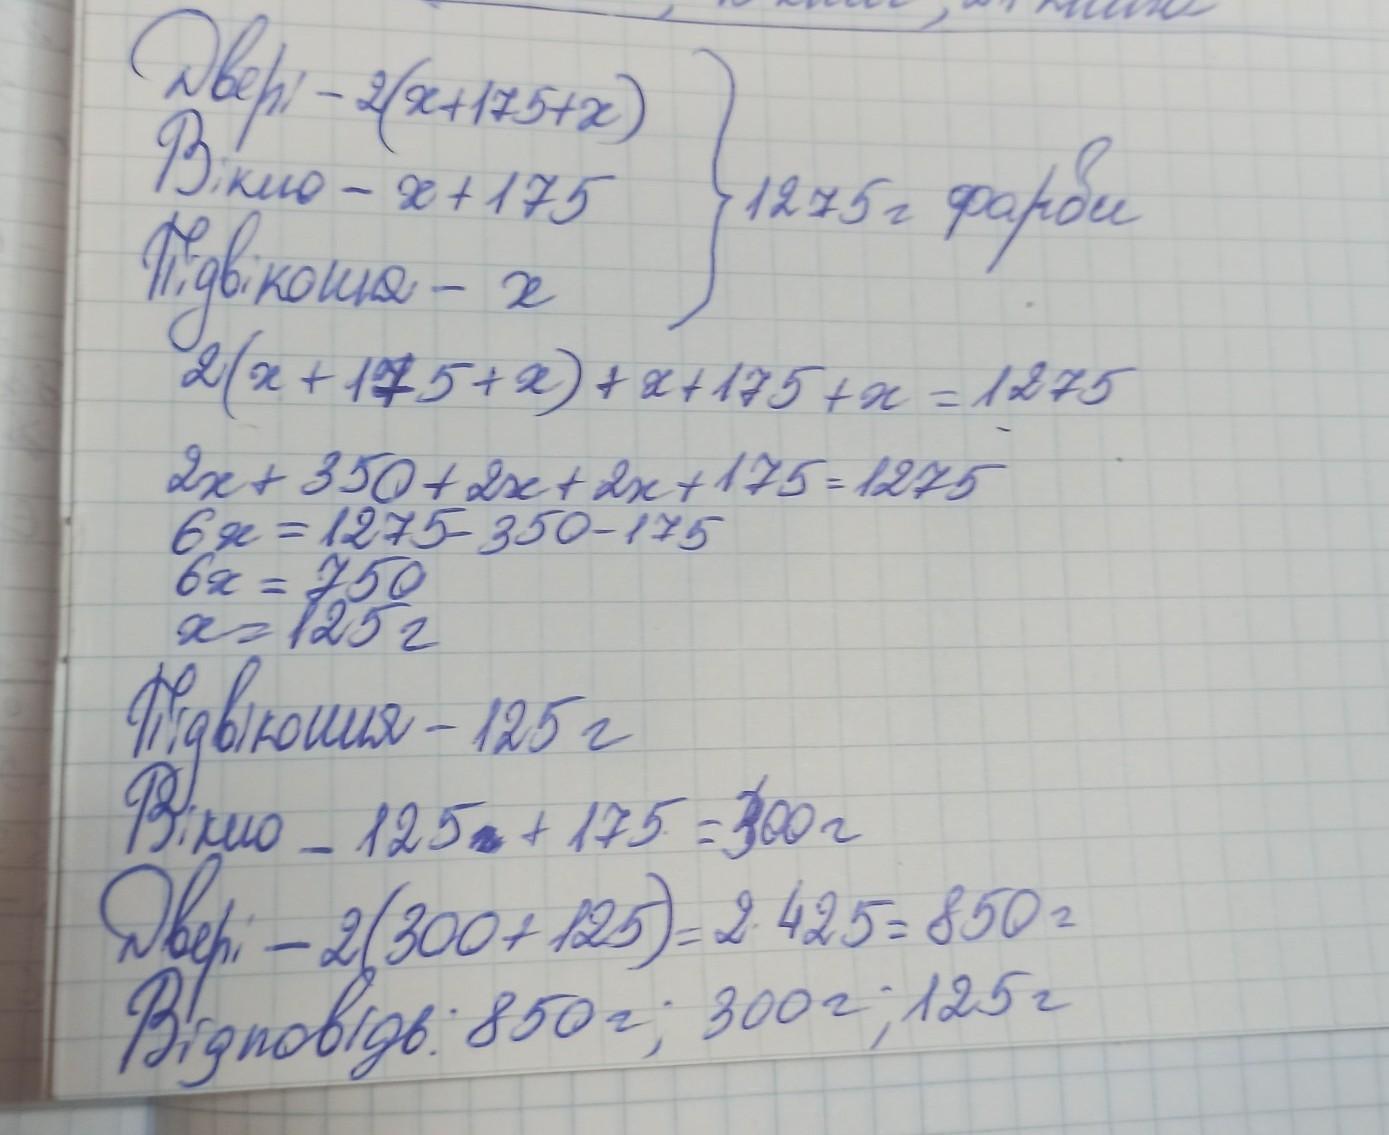 Двері - 2(x+175+x)
Вікно - x+175
Підвіконня - x
} 1275г фарби
2(x+175+x)+x+175+x=1275
2x+350+2x+2x+175=1275
6x=1275-350-175
6x=750
x=125г
Підвіконня - 125г
Вікно - 125+175=300г
Двері - 2(300+125)=2·425=850г
Відповідь: 850г; 300г; 125г